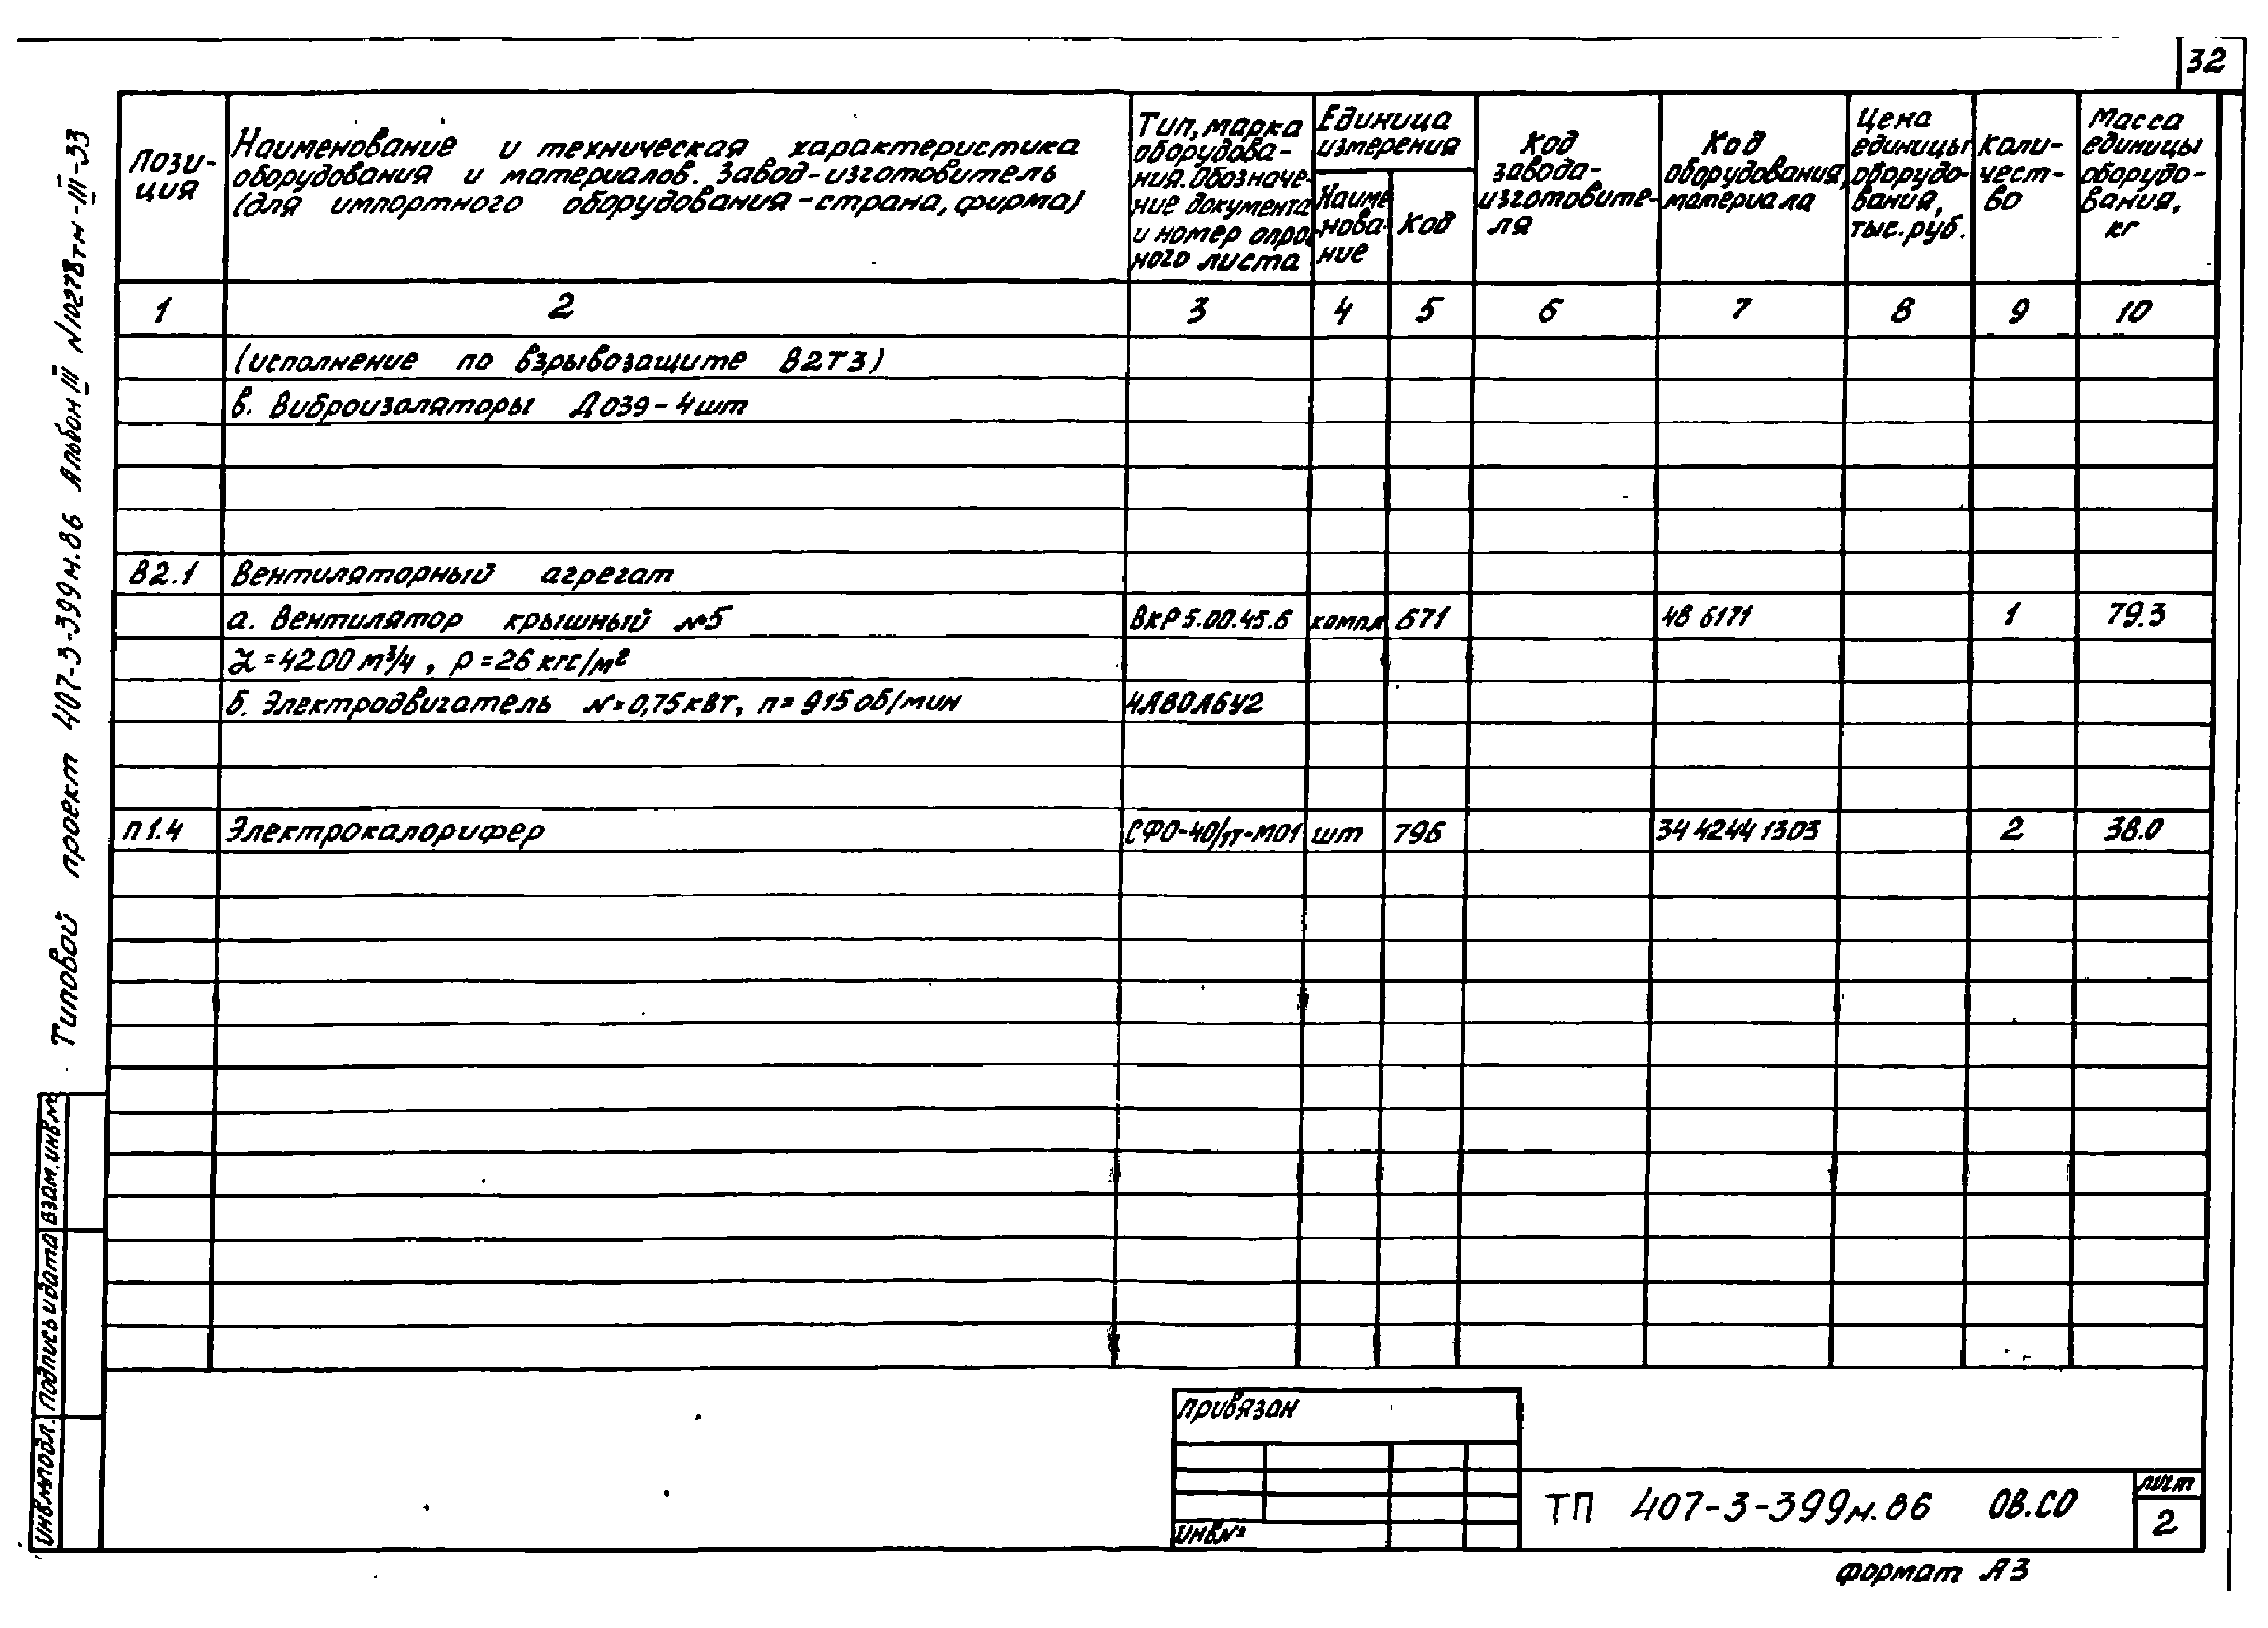 32
Пози-
ция
Наименование и техническая характеристика
оборудования и материалов. Завод-изготовитель
(для импортного оборудования-страна, фирма)
Тип, марка
оборудова-
ния. Обозначе-
ние документа
и номер опрос-
ного листа
Единица
измерения
Наиме
нова-
ние
Код
Код
завода-
изготовите-
ля
Код
оборудования,
материала
Цена
единицы
оборудо-
вания,
тыс. руб.
Коли-
чест-
во
Масса
единицы
оборудо-
вания,
кг
1 2 3 4 5 6 7 8 9 10
(исполнение по взрывозащите В2Т3)
в. Виброизоляторы Д039-4шт
В2.1 Вентиляторный агрегат
а. Вентилятор крышный №5 ВКР5.00.45.6 компл 671 48 6171 1 79.3
L=4200 м³/ч, р=26 кгс/м²
б. Электродвигатель N=0,75кВт, n=915 об/мин 4А80А6У2
П1.4 Электрокалорифер СФО-40/1т-М01 шт 796 34 4244 1303 2 38.0
Типовой проект 407-3-399м.86 Альбом III N10278тм-III-33
Взам. инв.№
Подпись и дата
Инв.№подл.
Привязан
Инв№
ТП 407-3-399м.86 ОВ.СО
лист
2
Формат А3